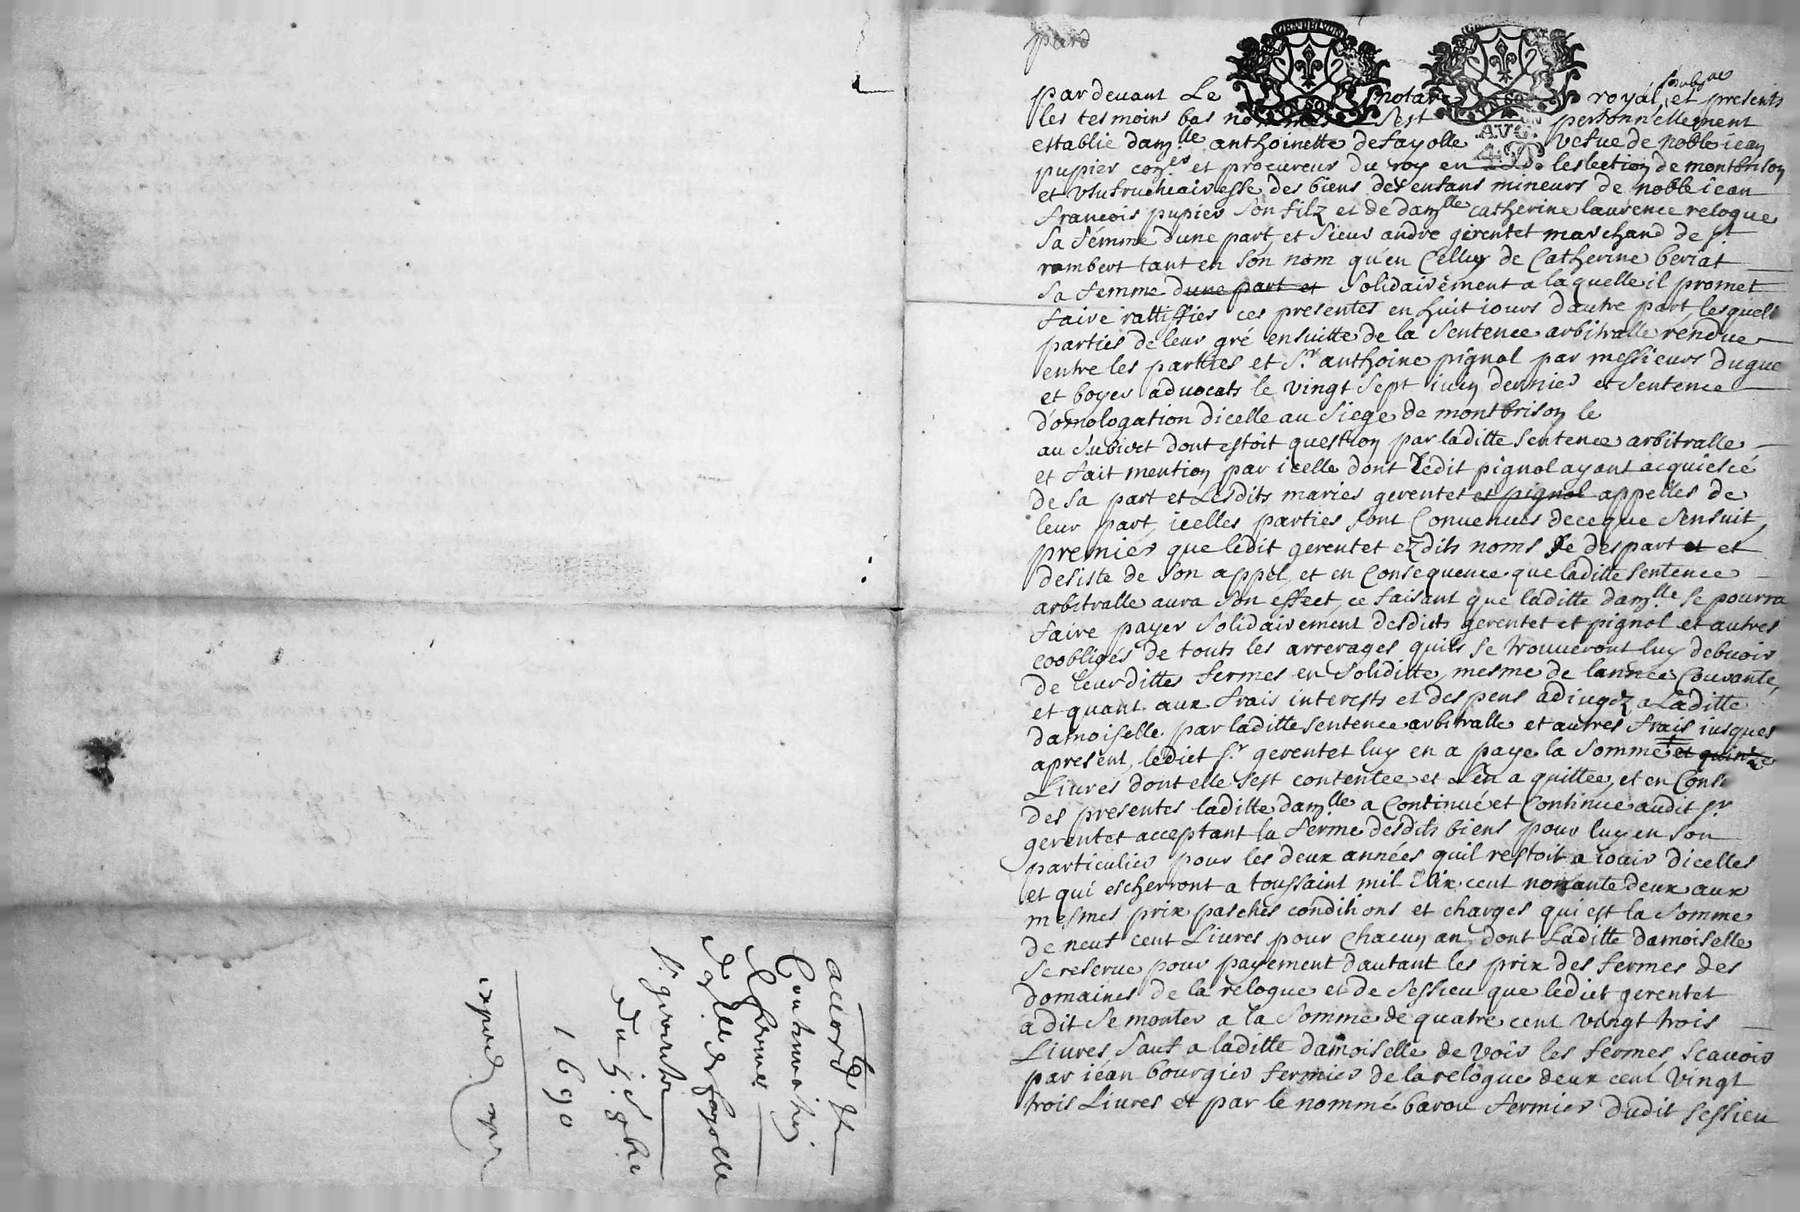 pard
pardevant Le notaire royal soubsné et presents
les tesmoins bas nommes sest personnellement
establie dam.lle anthoinette defayolle vefue de noble iean
pupier con.er et procureur du roy en leslection de montbrison
et Usufructiairesse des biens des enfans mineurs de noble iean
francois pupier son filz et de dam.lle catherine laurence relogue
sa femme dune part, et sieur andre gerentet marchand de st
rambert tant en son nom qu'en Celluy de Catherine beriat
sa femme dune part et solidairement a laquelle il promet
faire rattiffier ces presentes en huit iours dautre part, lesquels
parties de leur gré ensuitte de la sentence arbitralle rendue
entre les parties et Sr. anthoine pignol par messieurs dugue
et boyer advocats le vingt sept iuin dernier et sentence
d'omologation dicelle au siege de montbrison le
au subiect dont estoit question par laditte sentence arbitralle
et fait mention par icelle dont ledit pignol ayant acquiescé
de sa part et Lesdits maries gerentet et pignol appelles de
leur part, icelles parties sont Convenues de ce que sensuit,
premier que ledit gerentet ezdits noms se despart et et
desiste de son appel, et en Consequence que laditte sentence
arbitralle aura son effect, ce faisant que laditte dam.lle se pourra
faire payer solidairement desdits gerentet et pignol et autres
coobligés de touts les arrerages quils se trouueront luy debuoir
de leurdittes fermes en soliditte, mesme de lannee Courante,
et quant aux frais interests et despens adiugez a Laditte
damoiselle par laditte sentence arbitralle et autres frais iusques
apresent, ledict sr. gerentet luy en a paye la somme et quinze
Liures dont elle sest contentee et Len a quittee, et en Conse
des presentes laditte dam.lle a Continué et Continue audit sr
gerentet acceptant la ferme desdits biens pour luy en son
particulier pour les deux années quil restoit a iouir dicelles
et qui escherront a toussaint mil six cent nonante deux aux
mesmes prix pasches conditions et charges qui est la somme
de neuf cent Liures pour Chacun an, dont Laditte damoiselle
se reserue pour payement dautant les prix des fermes des
domaines de la relogue et de sessieu que ledict gerentet
a dit se monter a la somme de quatre cent vingt trois
Liures sauf a laditte damoiselle de voir les fermes, scauoir
par iean bourgier fermier de la relogue deux cent vingt
trois Liures et par le nommé barou fermier dudit sessieu
accord et
Continuation
de ferme
d.lle de fayolle
sr. gerentet
du 5 8bre
1690
exped